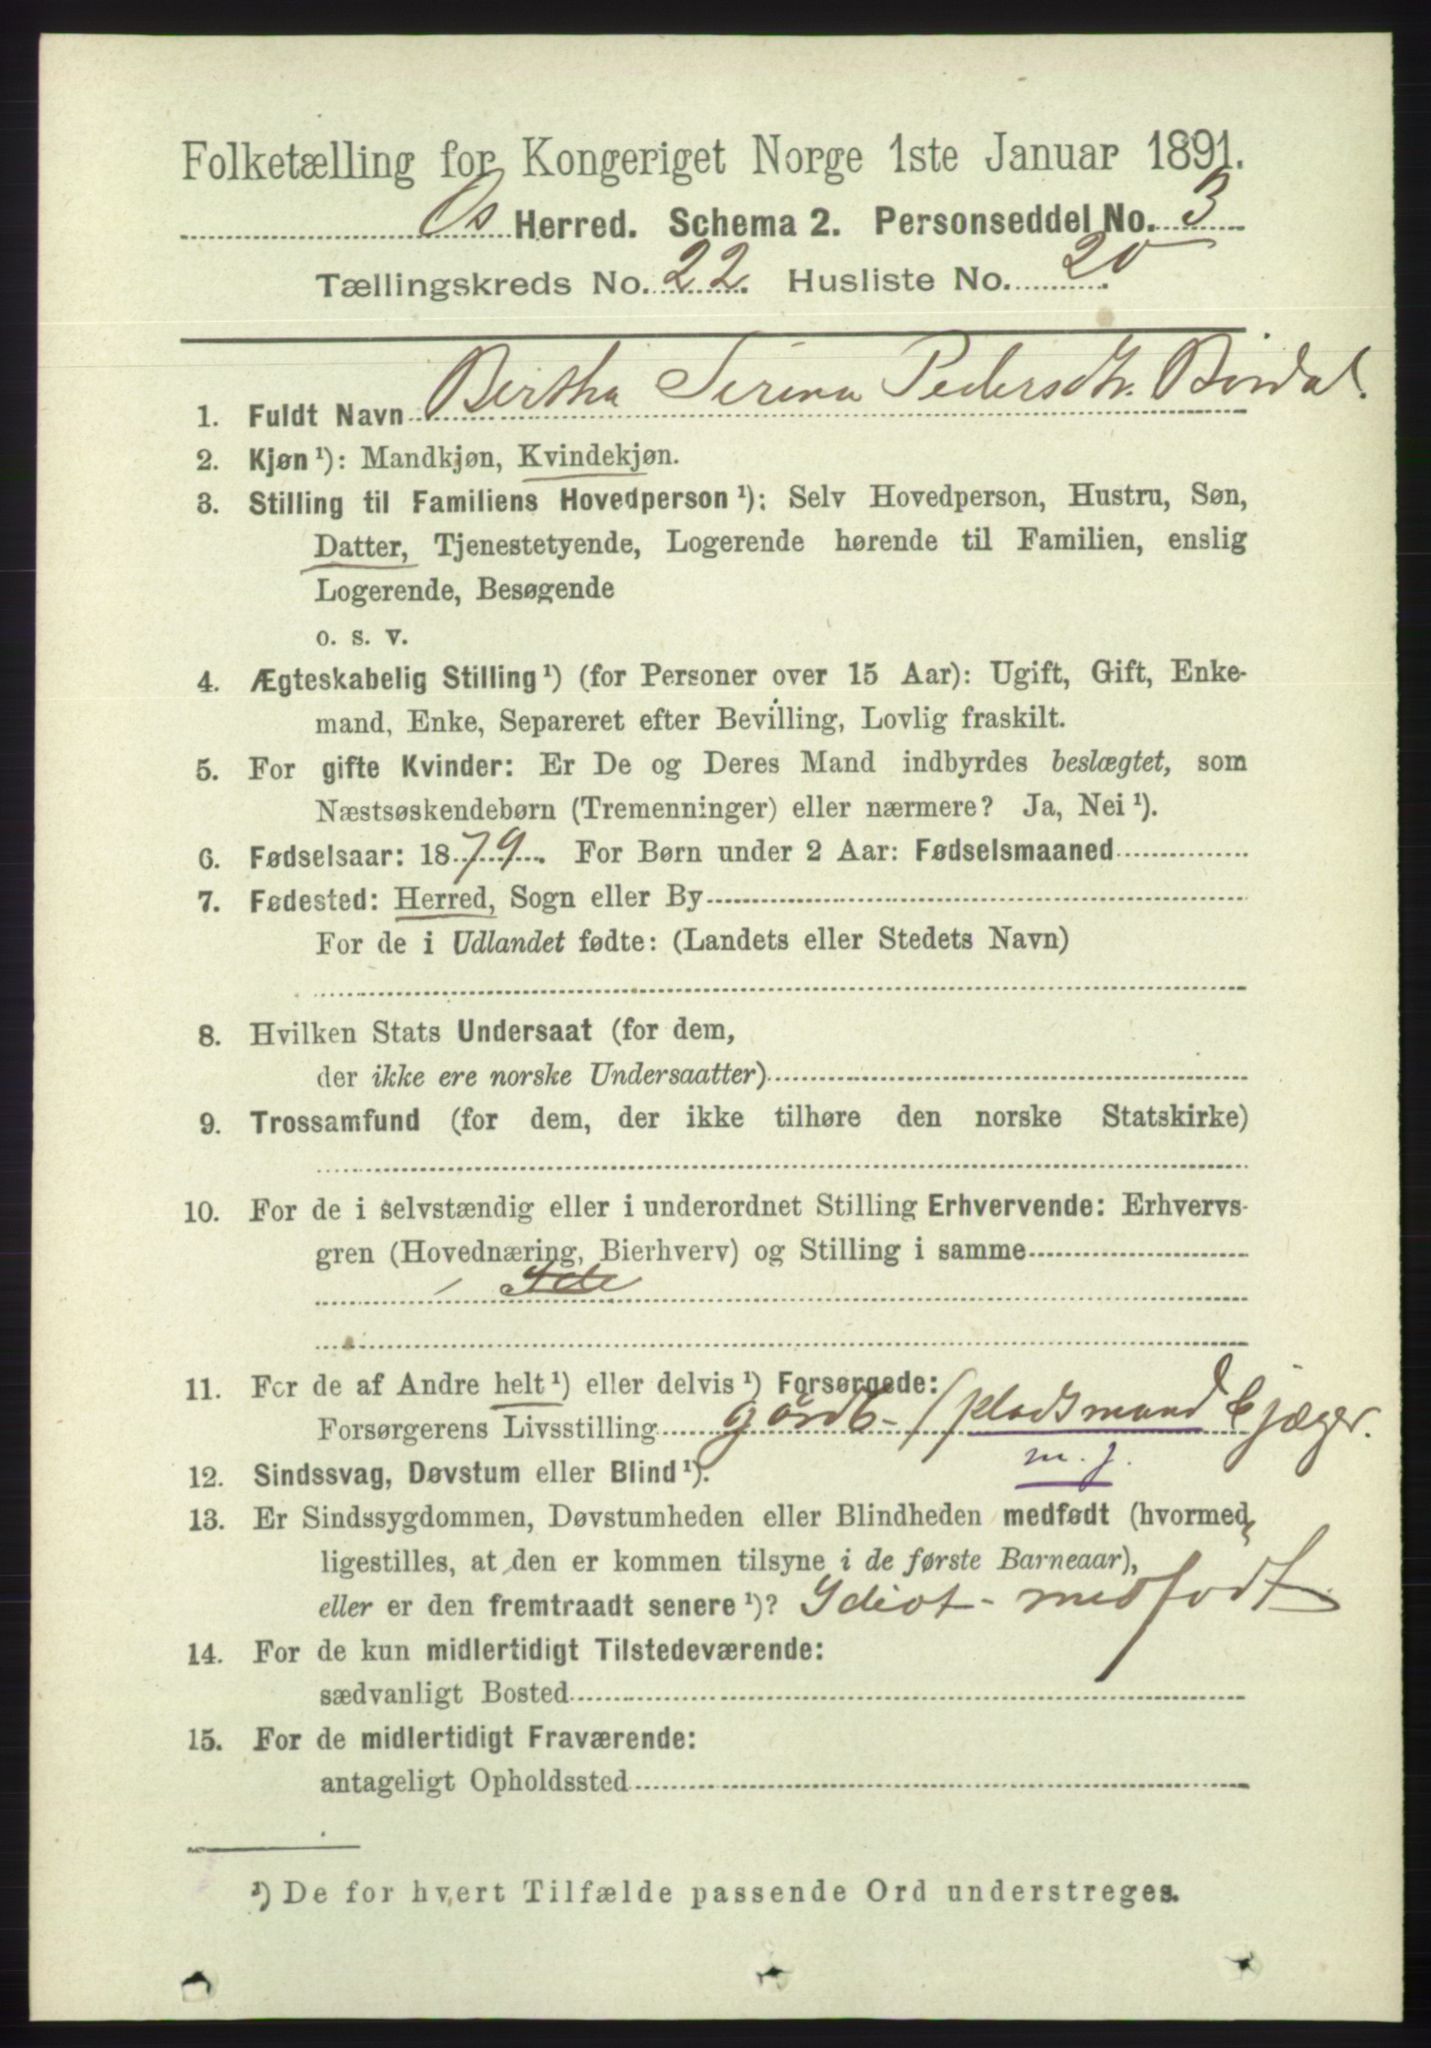 Folketælling for Kongeriget Norge 1ste Januar 1891.
Os Herred. Schema 2. Personseddel No. 3
Tællingskreds No. 22. Husliste No. 20
1. Fuldt Navn Bertha Serina Pedersdtr. Bördal.
2. Kjøn ¹): Mandkjøn, Kvindekjøn.
3. Stilling til Familiens Hovedperson ¹): Selv Hovedperson, Hustru, Søn,
Datter, Tjenestetyende, Logerende hørende til Familien, enslig
Logerende, Besøgende
o. s. v.
4. Ægteskabelig Stilling ¹) (for Personer over 15 Aar): Ugift, Gift, Enke-
mand, Enke, Separeret efter Bevilling, Lovlig fraskilt.
5. For gifte Kvinder: Er De og Deres Mand indbyrdes beslægtet, som
Næstsøskendebørn (Tremenninger) eller nærmere? Ja, Nei ¹).
6. Fødselsaar: 1879. For Børn under 2 Aar: Fødselsmaaned
7. Fødested: Herred, Sogn eller By
For de i Udlandet fødte: (Landets eller Stedets Navn)
8. Hvilken Stats Undersaat (for dem,
der ikke ere norske Undersaatter)
9. Trossamfund (for dem, der ikke tilhøre den norske Statskirke)
10. For de i selvstændig eller i underordnet Stilling Erhvervende: Erhvervs-
gren (Hovednæring, Bierhverv) og Stilling i samme
11. For de af Andre helt ¹) eller delvis ¹) Forsørgede:
Forsørgerens Livsstilling gårdb- / pladsmand & jæger.
m. j.
12. Sindssvag, Døvstum eller Blind ¹).
13. Er Sindssygdommen, Døvstumheden eller Blindheden medfødt (hvormed
ligestilles, at den er kommen tilsyne i de første Barneaar),
eller er den fremtraadt senere ¹)? Idiot - medfödt
14. For de kun midlertidigt Tilstedeværende:
sædvanligt Bosted
15. For de midlertidigt Fraværende:
antageligt Opholdssted
¹) De for hvert Tilfælde passende Ord understreges.